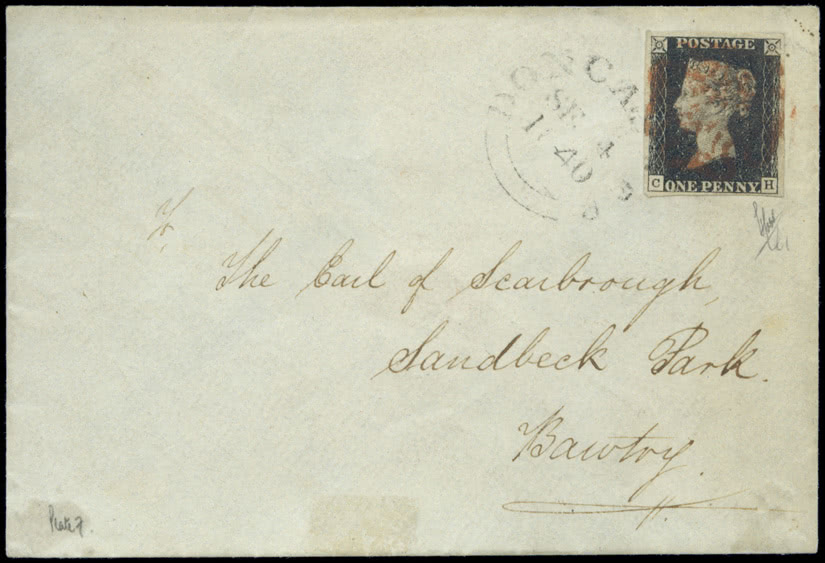 POSTAGE
DONCAS
SE 4
1840
C ONE PENNY H
The Earl of Scarbrough,
Sandbeck Park.
Bawtry.
Plate 7.